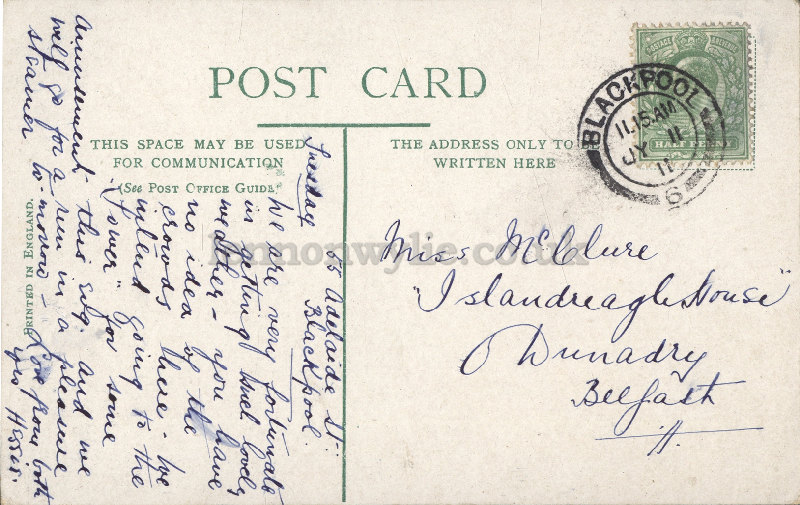 POST CARD
THIS SPACE MAY BE USED
FOR COMMUNICATION
(See POST OFFICE GUIDE)
THE ADDRESS ONLY TO BE
WRITTEN HERE
POSTAGE REVENUE
HALF PENNY
BLACKPOOL
11.15 AM
JY 11
11
6
PRINTED IN ENGLAND.
55 Adelaide St.
Blackpool.
Tuesday
We are very fortunate
in getting such lovely
weather - you have
no idea of the
crowds here. We
intend going to the
"Tower" for some
amusement this evg. and we
will go for a run in a pleasure
steamer to-morrow -
Love from both
yrs Hessie.
Miss McClure
"Islandreagh House"
Dunadry
Belfast
lennonwylie.co.uk